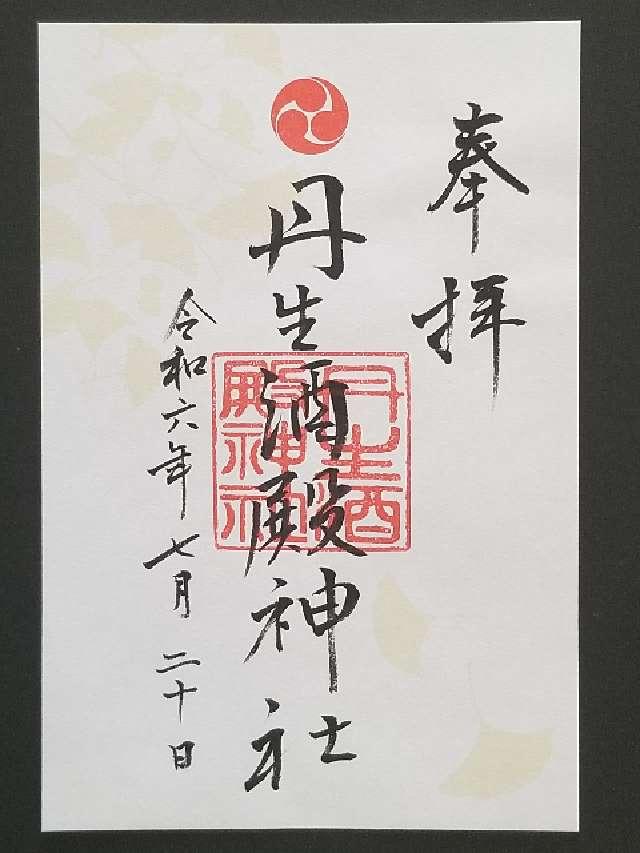 奉拝
丹生酒殿神社
丹生酒殿神社
令和六年七月二十日